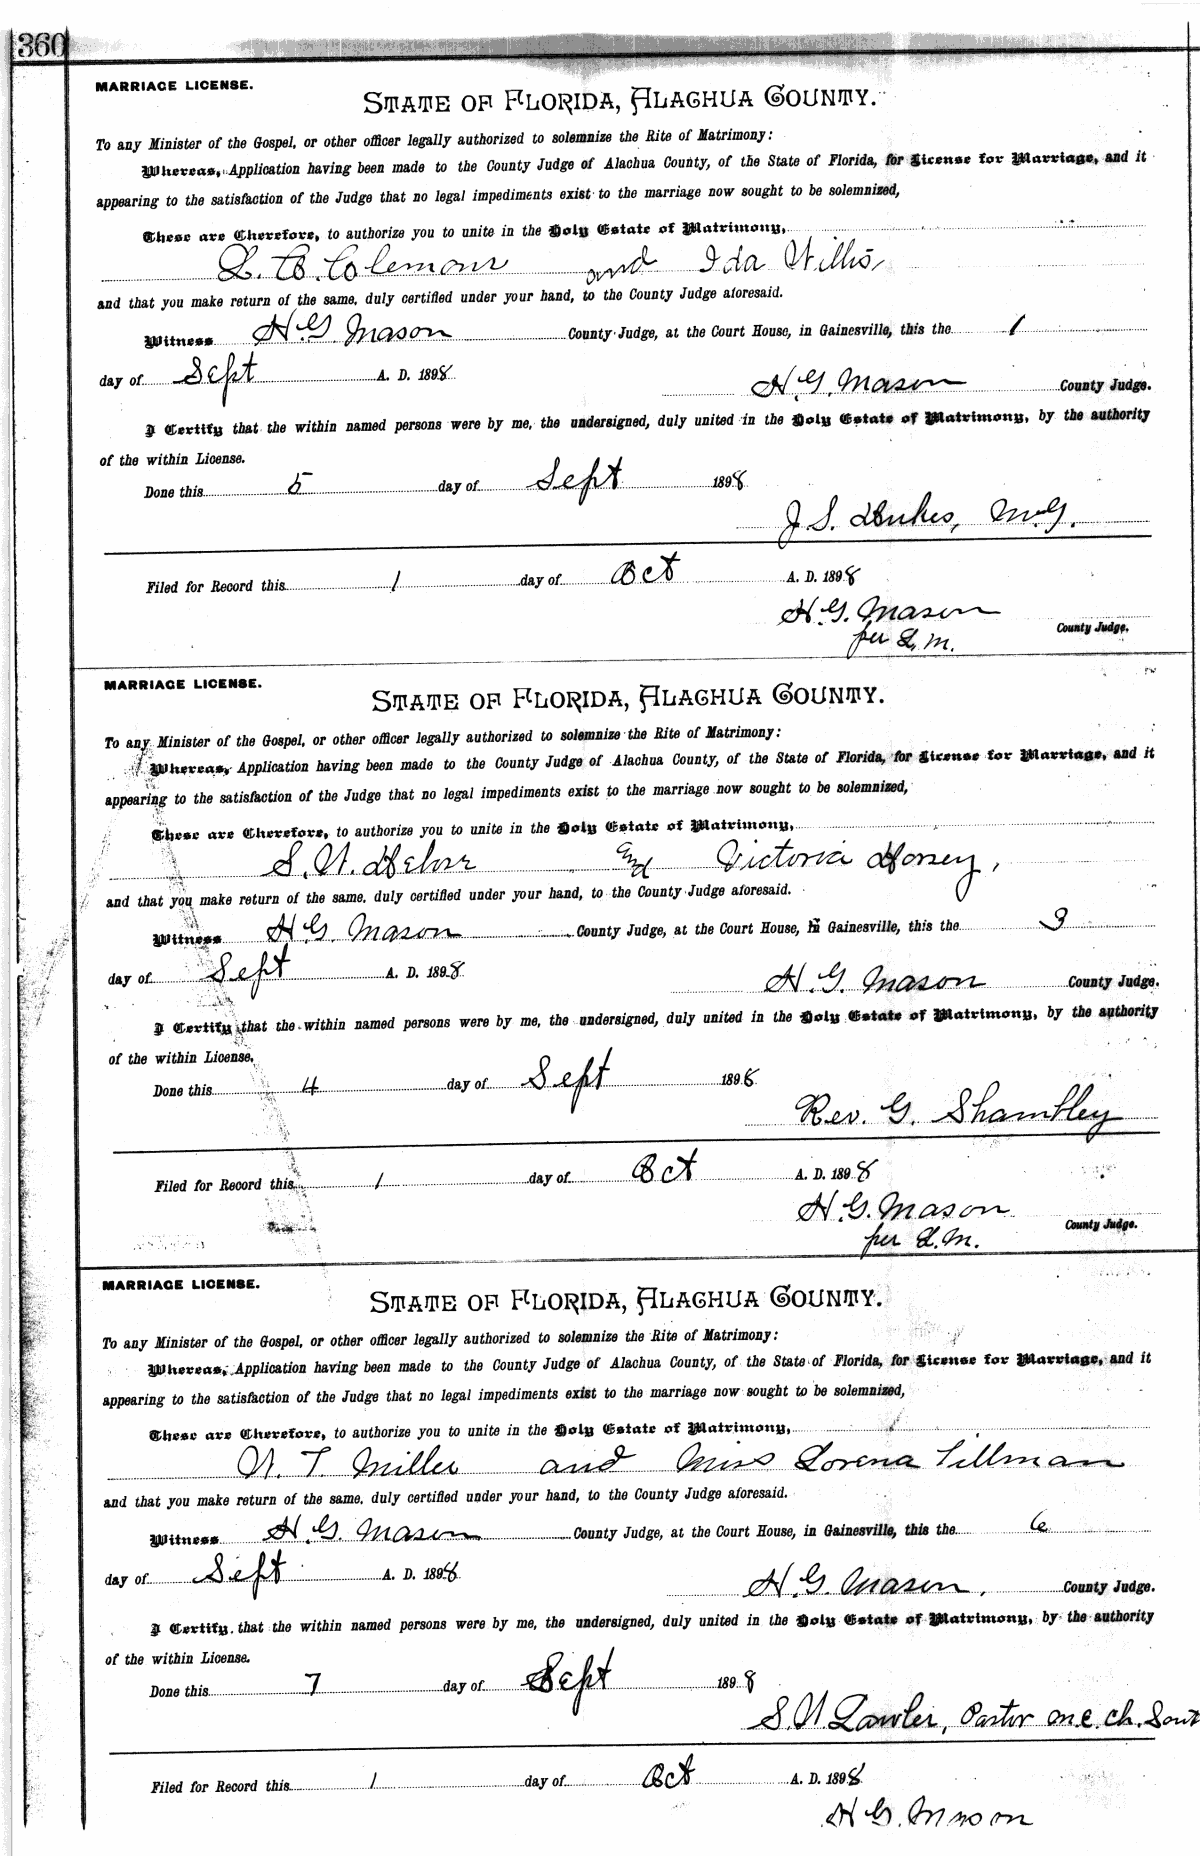 360
MARRIAGE LICENSE.
STATE OF FLORIDA, ALACHUA COUNTY.
To any Minister of the Gospel, or other officer legally authorized to solemnize the Rite of Matrimony:
Whereas, Application having been made to the County Judge of Alachua County, of the State of Florida, for License for Marriage, and it
appearing to the satisfaction of the Judge that no legal impediments exist to the marriage now sought to be solemnized,
These are Therefore, to authorize you to unite in the Holy Estate of Matrimony,
L. B. Coleman and Ida Willis,
and that you make return of the same, duly certified under your hand, to the County Judge aforesaid.
Witness H. G. Mason County Judge, at the Court House, in Gainesville, this the 1
day of Sept A. D. 1898
H. G. Mason County Judge.
I Certify that the within named persons were by me, the undersigned, duly united in the Holy Estate of Matrimony, by the authority
of the within License.
Done this 5 day of Sept 1898
J. S. Dukes, M.G.
Filed for Record this 1 day of Oct A. D. 1898
H. G. Mason
per L. M. County Judge.
MARRIAGE LICENSE.
STATE OF FLORIDA, ALACHUA COUNTY.
To any Minister of the Gospel, or other officer legally authorized to solemnize the Rite of Matrimony:
Whereas, Application having been made to the County Judge of Alachua County, of the State of Florida, for License for Marriage, and it
appearing to the satisfaction of the Judge that no legal impediments exist to the marriage now sought to be solemnized,
These are Therefore, to authorize you to unite in the Holy Estate of Matrimony,
S. W. and Victoria Dorsey,
and that you make return of the same, duly certified under your hand, to the County Judge aforesaid.
Witness H. G. Mason County Judge, at the Court House, in Gainesville, this the 3
day of Sept A. D. 1898
H. G. Mason County Judge.
I Certify that the within named persons were by me, the undersigned, duly united in the Holy Estate of Matrimony, by the authority
of the within License.
Done this 4 day of Sept 1898
Rev. G. Shambley
Filed for Record this 1 day of Oct A. D. 1898
H. G. Mason
per L. M. County Judge.
MARRIAGE LICENSE.
STATE OF FLORIDA, ALACHUA COUNTY.
To any Minister of the Gospel, or other officer legally authorized to solemnize the Rite of Matrimony:
Whereas, Application having been made to the County Judge of Alachua County, of the State of Florida, for License for Marriage, and it
appearing to the satisfaction of the Judge that no legal impediments exist to the marriage now sought to be solemnized,
These are Therefore, to authorize you to unite in the Holy Estate of Matrimony,
W. T. Miller and Miss Lorena Tillman
and that you make return of the same, duly certified under your hand, to the County Judge aforesaid.
Witness H. G. Mason County Judge, at the Court House, in Gainesville, this the 6
day of Sept A. D. 1898
H. G. Mason, County Judge.
I Certify that the within named persons were by me, the undersigned, duly united in the Holy Estate of Matrimony, by the authority
of the within License.
Done this 7 day of Sept 1898
S. W. Lawler, Pastor M.E. Ch. Sout
Filed for Record this 1 day of Oct A. D. 1898
H. G. Mason